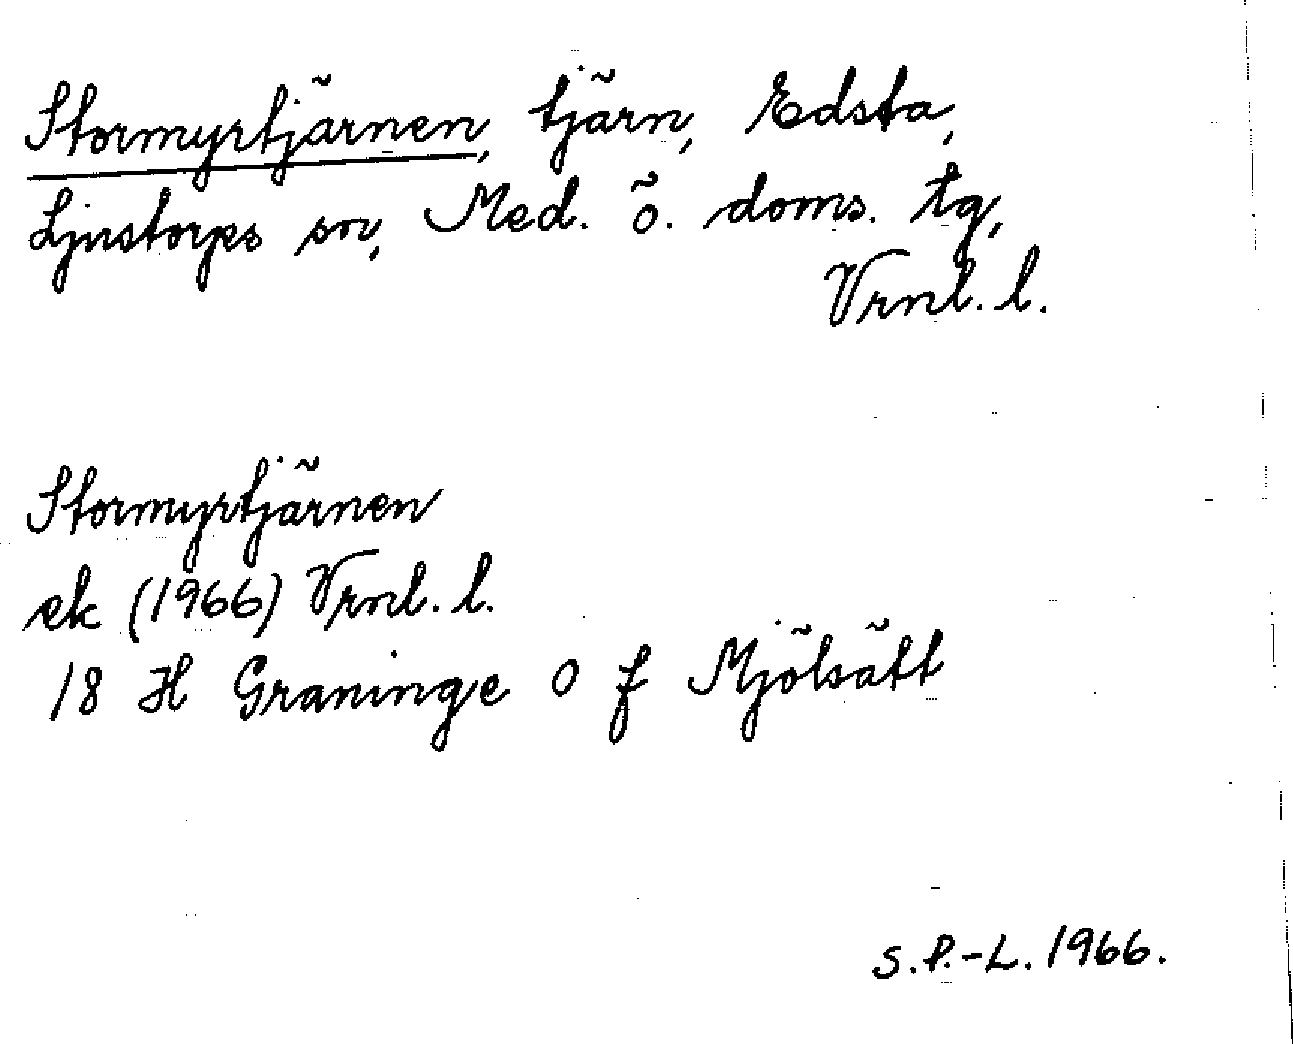 Stormyrtjärnen, tjärn, Edsta,
Ljustorps sn, Med. ö. doms. tg,
Vrnl. l.
Stormyrtjärnen
ek (1966) Vrnl. l.
18 H Graninge o f Mjölsätt
S.P.-L. 1966.